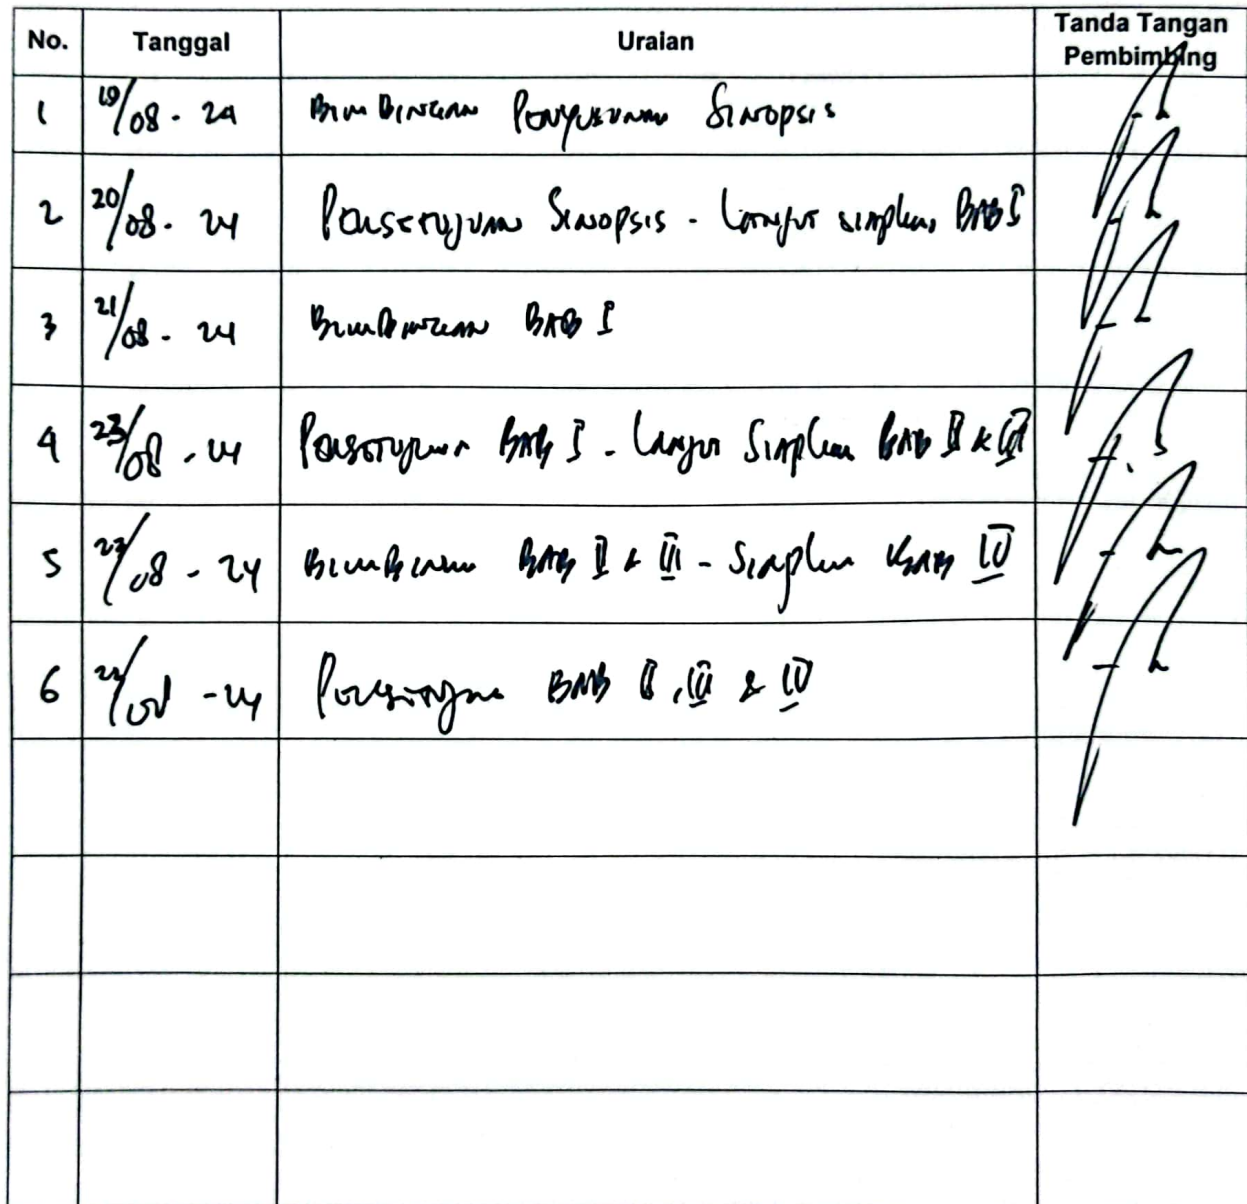 No. Tanggal Uraian Tanda Tangan Pembimbing
1 19/08 - 24 Bimbingan Penyusunan Sinopsis
2 20/08 - 24 Persetujuan Sinopsis - Lanjut siapkan BAB I
3 21/08 - 24 Bimbingan BAB I
4 23/08 - 24 Persetujuan BAB I - Lanjut Siapkan BAB II & III
5 /08 - 24 Bimbingan BAB II & III - Siapkan BAB IV
6 - 24 Persetujuan BAB II, III & IV